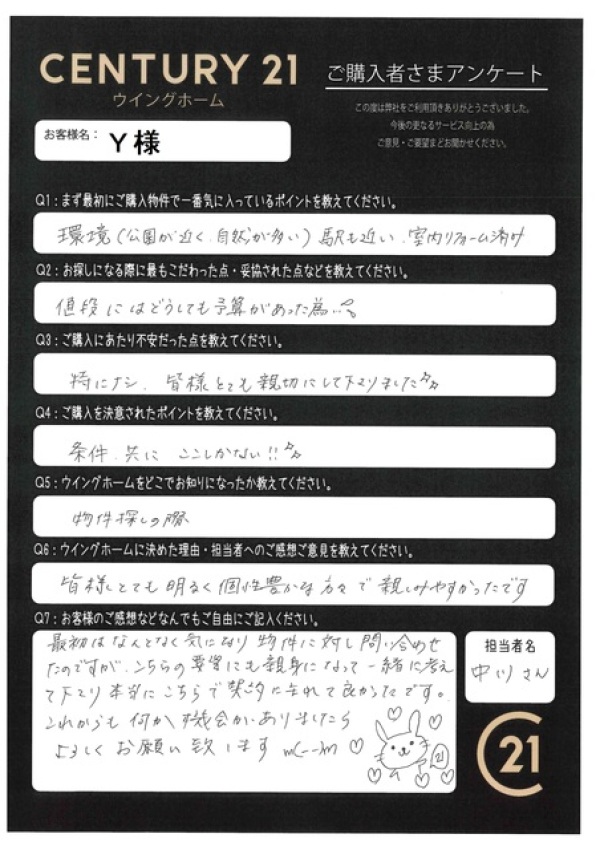 CENTURY 21
ウイングホーム
ご購入者さまアンケート
この度は弊社をご利用頂きありがとうございました。
今後の更なるサービス向上の為
ご意見・ご要望まどお聞かせください。
お客様名： Y様
Q1：まず最初にご購入物件で一番気に入っているポイントを教えてください。
環境（公園が近く、自然が多い）駅も近い、室内リフォーム済み
Q2：お探しになる際に最もこだわった点・妥協された点などを教えてください。
値段にはどうしても予算があった為…。
Q3：ご購入にあたり不安だった点を教えてください。
特にナシ、皆様とても親切にして下さりました
Q4：ご購入を決意されたポイントを教えてください。
条件、共に ここしかない!!
Q5：ウイングホームをどこでお知りになったか教えてください。
物件探しの際
Q6：ウイングホームに決めた理由・担当者へのご感想ご意見を教えてください。
皆様とても明るく個性豊かな方々で親しみやすかったです
Q7：お客様のご感想などなんでもご自由にご記入ください。
最初はなんとなく気になり物件に対し問い合わせ
たのですが、こちらの要望にも親身になって一緒に考え
て下さり本当にこちらで契約されて良かったです。
これからも何か機会がありましたら
よろしくお願い致します m(--)m ♡
21
担当者名
中川さん
21